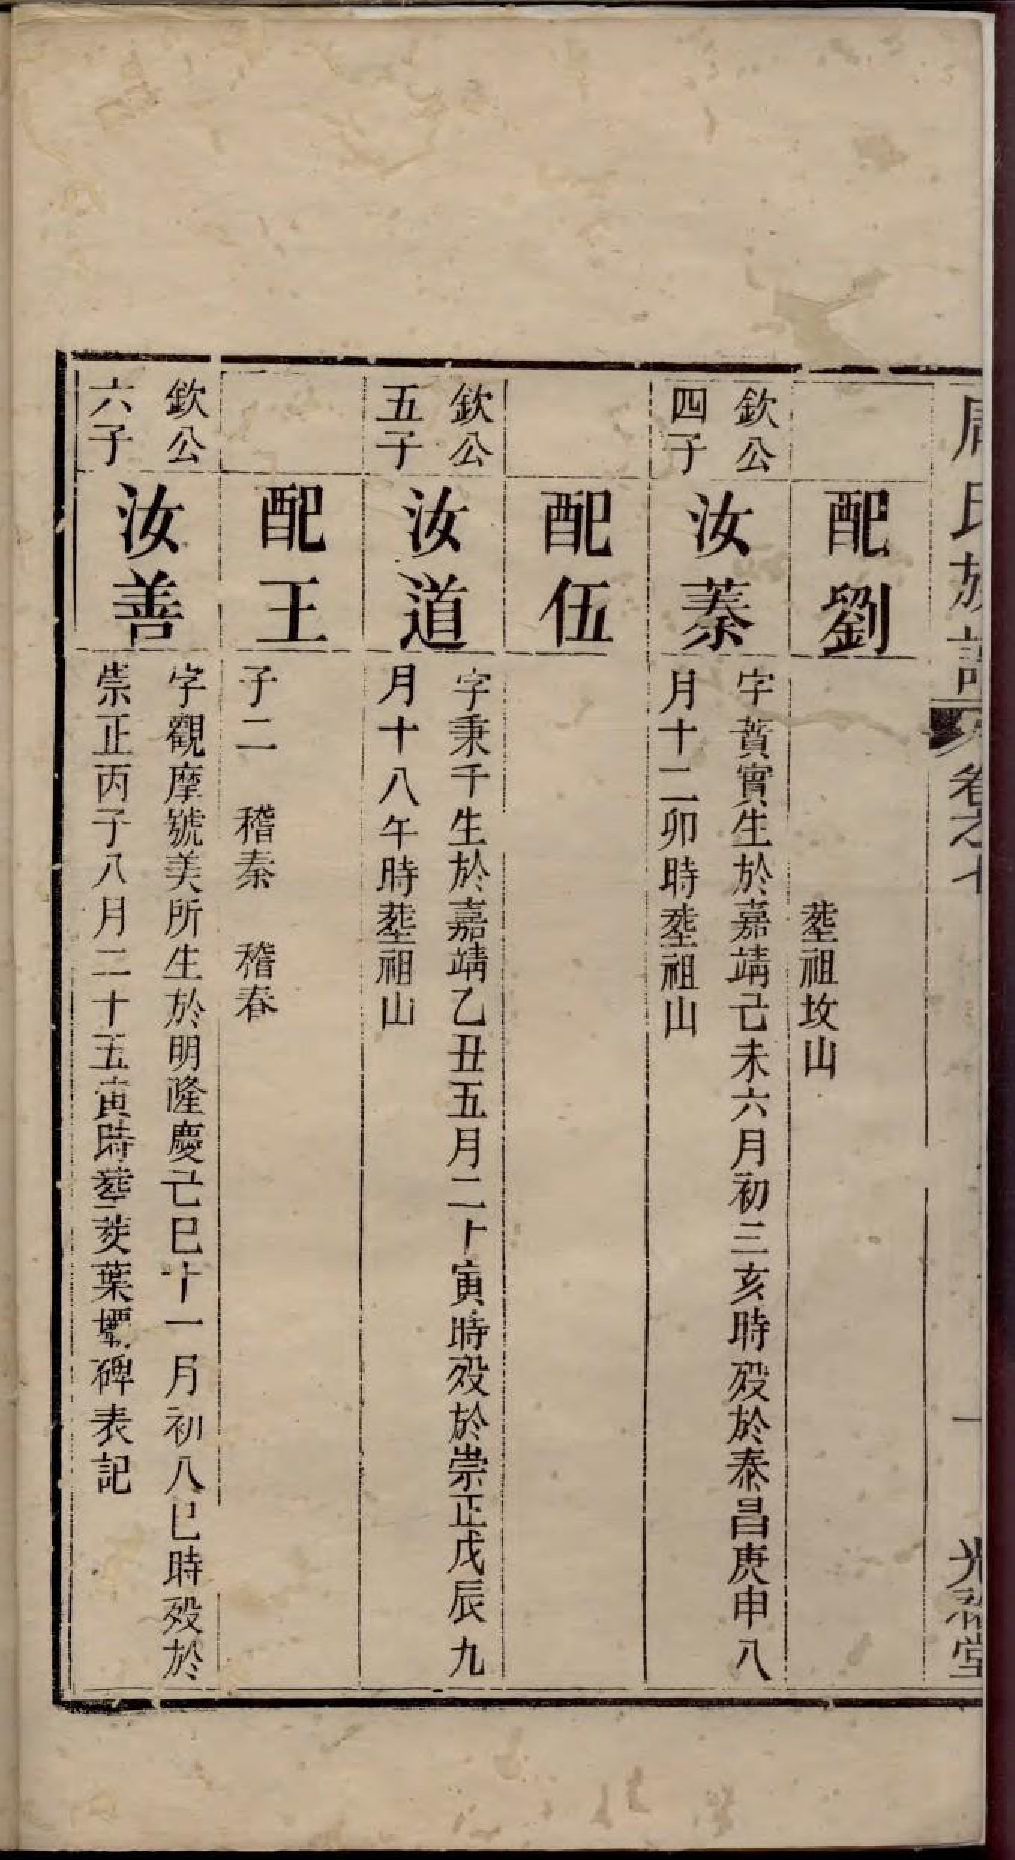 周氏族譜
卷之七
一
光裕堂
配劉
塟祖坟山
欽公
四子
汝蓁
字蕡實生於嘉靖己未六月初三亥時歿於泰昌庚申八
月十二卯時塟祖山
配伍
欽公
五子
汝道
字秉千生於嘉靖乙丑五月二十寅時歿於崇正戊辰九
月十八午時塟祖山
配王
子二 稽秦 稽春
欽公
六子
汝善
字觀摩號美所生於明隆慶己巳十一月初八巳時歿於
崇正丙子八月二十五寅時塟茭葉壜碑表記